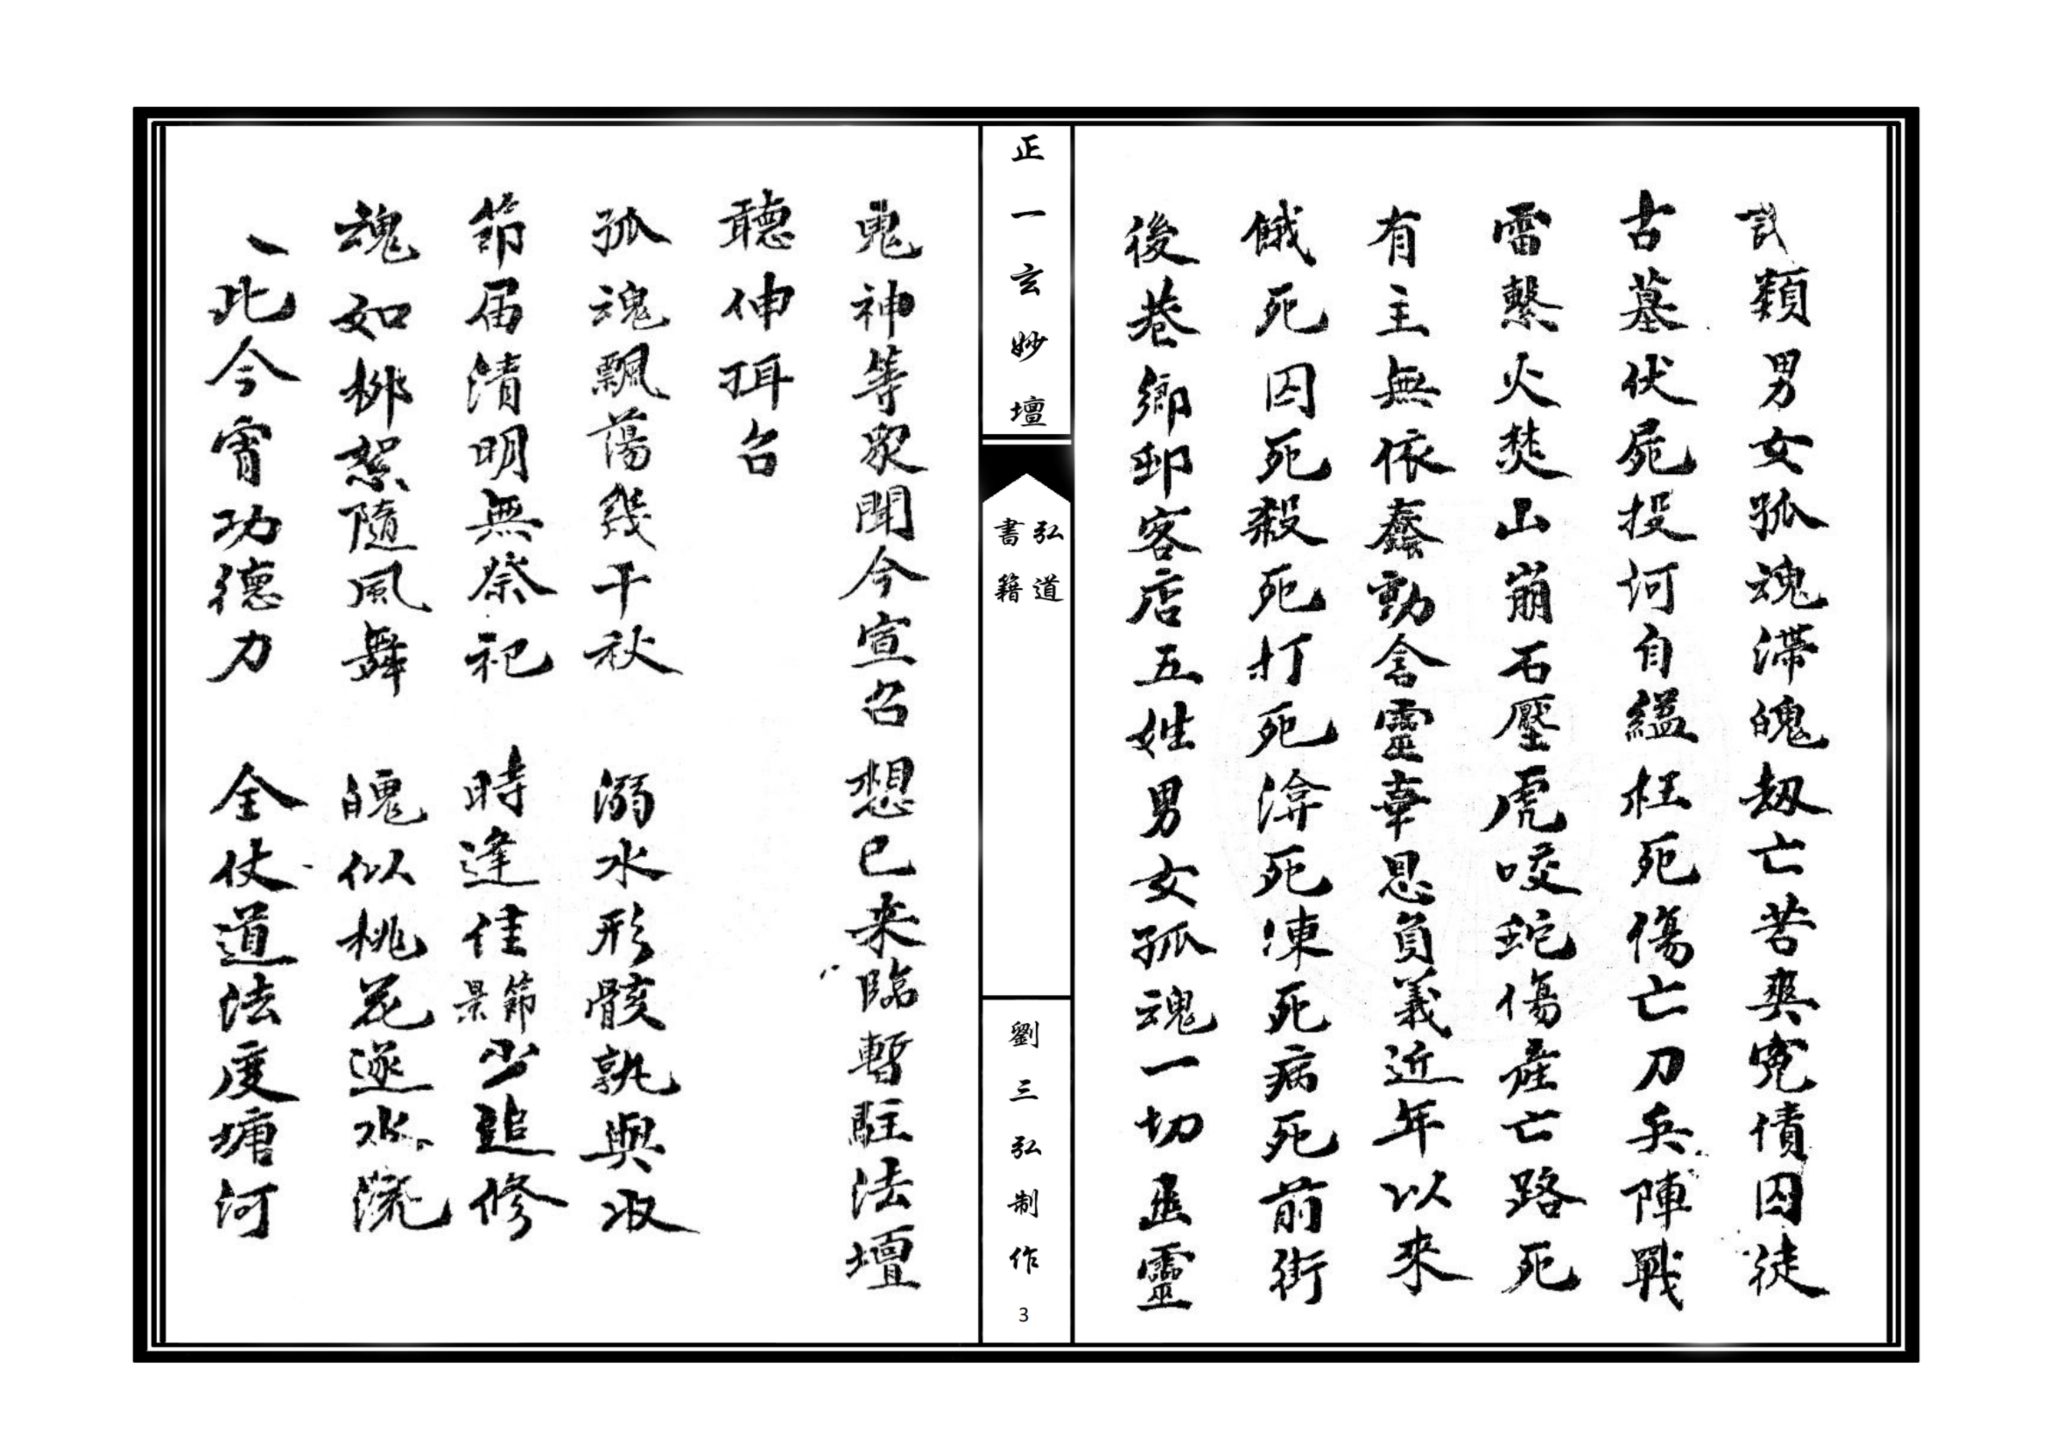 類男女孤魂滯魄刼亡苦爽寃債囚徒
古墓伏屍投河自縊枉死傷亡刀兵陣戰
雷擊火焚山崩石壓虎咬蛇傷產亡路死
有主無依蠢動含靈辜恩負義近年以來
餓死囚死殺死打死渰死凍死病死前街
後巷鄉邨客店五姓男女孤魂一切幽靈
正一玄妙壇
弘道
書籍
劉三弘制作
3
鬼神等衆聞今宣召想已来臨暫駐法壇
聽伸再召
孤魂飄蕩幾千秋 溺水形骸孰與收
節届清明無祭祀 時逢佳節景少追修
魂如柳絮隨風舞 魄似桃花逐水流
、此今宵功德力 全仗道法度塘河